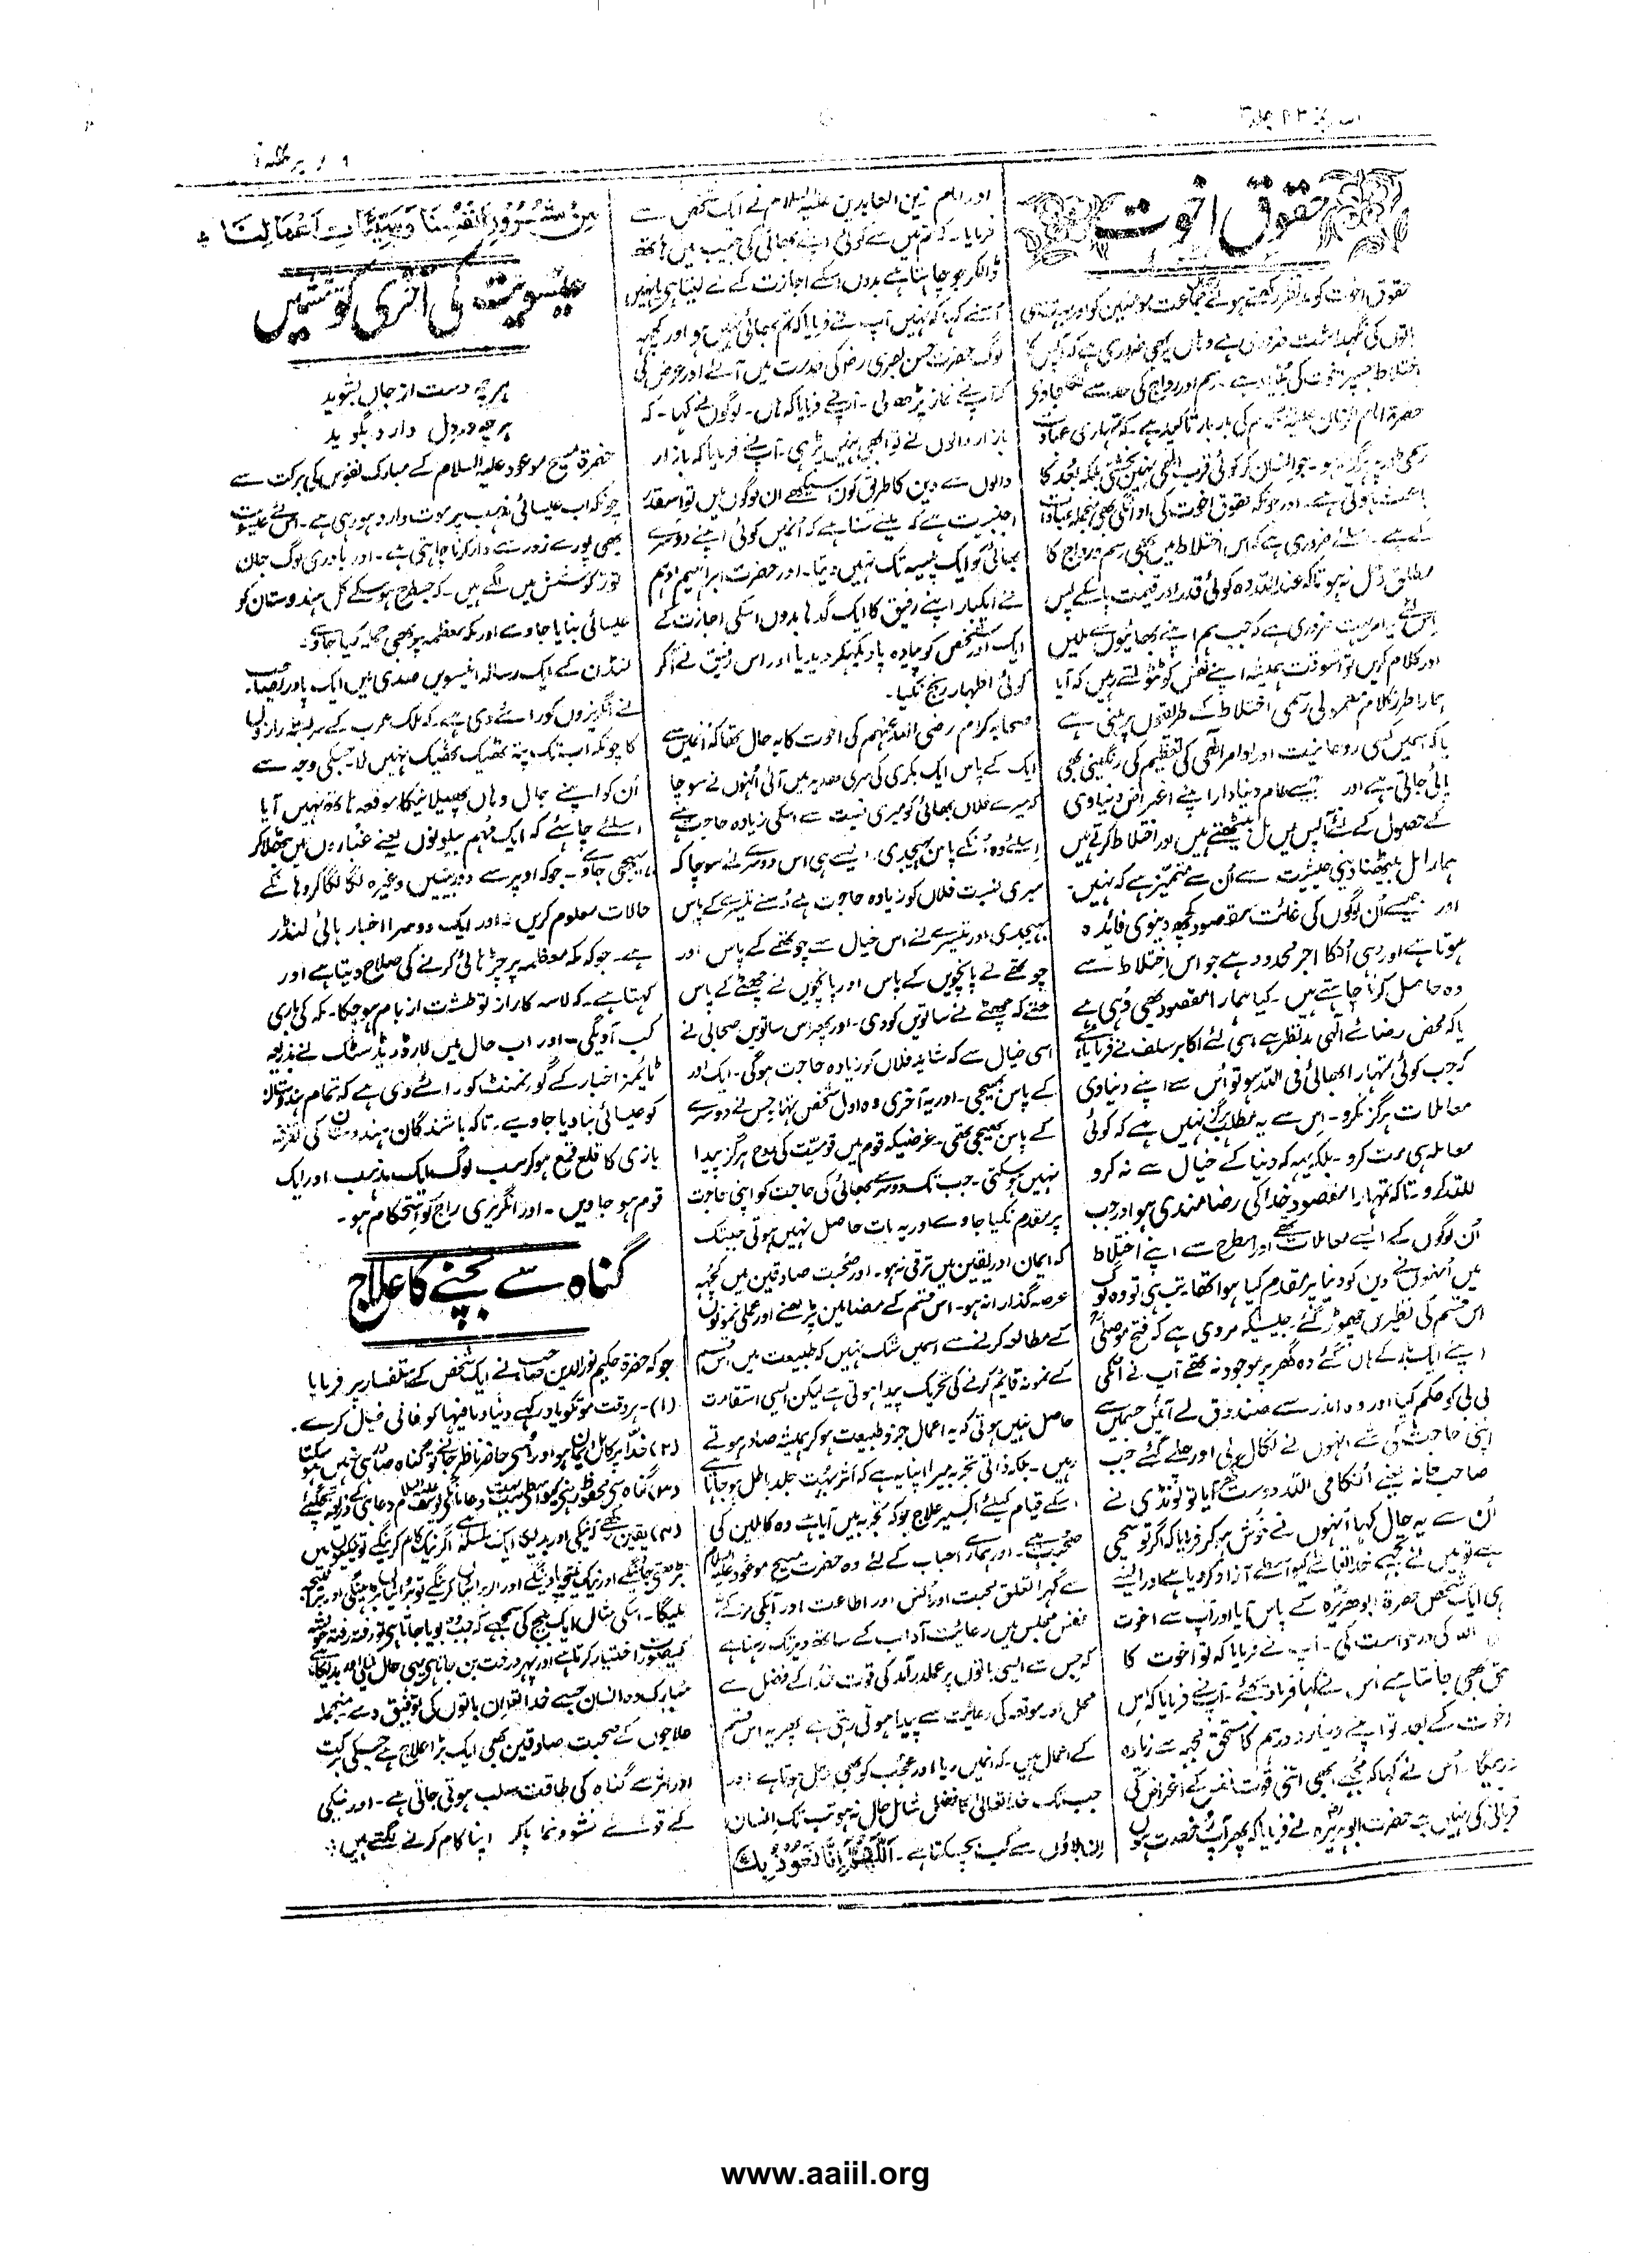 حقوق اخوت
حقوق اخوت کو مدنظر رکھتے ہوئے جماعت مومنین کو اور بہت سی
باتوں کی نگہداشت ضروری ہے وہاں یہ بھی ضروری ہے کہ آپس کا
اختلاط جسپر اخوت کی بنیاد ہے۔ رسم اور رواج کی حد سے
حضرۃ امام الزمان کی بار بار تاکید ہے کہ تمہاری عبادت
رسمی طور پر ہرگز نہ ہو۔ جو انسان کو کوئی قرب الٰہی نہیں بخشتی بلکہ بعد کا
باعث ہوتی ہے۔ اور چونکہ حقوق اخوت کی ادائگی بھی منجملہ عبادات
کے ہے۔ اسلئے ضروری ہے کہ اس اختلاط میں بھی رسم و رواج کا
مطلق دخل نہ ہو تاکہ عنداللہ وہ کوئی قدر اور قیمت پاسکے پس
اس لئے یہ امر بہت ضروری ہے کہ جب ہم اپنے بھائیوں سے ملیں
اور کلام کریں تو اسوقت ہمیشہ اپنے نفس کو ٹٹولتے رہیں کہ آیا
ہمارا طرز کلام معمولی رسمی اختلاط کے طریقوں پر مبنی ہے
یا کہ اسمیں کسی روحانیت اور اوامر الٰہی کی تعظیم کی رنگینی بھی
پائی جاتی ہے اور جیسے عام دنیا دار اپنے اغراض دنیاوی
کے حصول کے لئے آپس میں مل بیٹھتے ہیں اور اختلاط کرتے ہیں
ہمارا مل بیٹھنا دینی حیثیت سے اُن سے متمیز ہے کہ نہیں۔
اور جیسے اُن لوگوں کی غائت مقصود کچھ دنیوی فائدہ
ہوتا ہے اور وہی اُنکا اجر محدود ہے جو اس اختلاط سے
وہ حاصل کرنا چاہتے ہیں۔ کیا ہمارا مقصود بھی وُہی ہے
یا کہ محض رضائے الٰہی مدنظر ہے اسی لئے اکابر سلف نے فرمایا ہے
کہ جب کوئی تمہارا بھائی فی اللہ ہو تو اُس سے اپنے دنیاوی
معاملات ہرگز نکرو۔ اس سے یہ مطلب ہرگز نہیں ہے کہ کوئی
معاملہ ہی مت کرو۔ بلکہ یہہ کہ دنیا کے خیال سے نہ کرو
للہ کرو۔ تاکہ تمہارا مقصود خدا کی رضامندی ہو اور جب
اُن لوگوں کے ایسے معاملات تھے اور اسطرح سے اپنے اختلاط
میں اُنہوں نے دین کو دنیا پر مقدم کیا ہوا تھا۔ تب ہی تو وہ لوگ
اس قسم کی نظیریں چھوڑ گئے۔ جیسا کہ مروی ہے کہ فتح موصلیؒ
اپنے ایک کے ہاں گئے وہ گھر پر موجود نہ تھے آپ نے انکی
بی بی کو حکم کیا اور وہ اندر سے صندوق لے آئیں جسمیں سے
اپنی حاجت کی شے انہوں نے نکال لی اور چلے گئے جب
صاحب خانہ یعنے اُنکا فی اللہ دوست آیا تو لونڈی نے
اُن سے یہ حال کہا اُنہوں نے خوش ہو کر فرمایا کہ اگر تو سچی
ہے تو میں نے تجھے خدا تعالیٰ کیواسطے آزاد کر دیا ہے اور ایسے
ہی ایک شخص حضرۃ ابو ہریرہ کے پاس آیا اور آپ سے اخوت
فی اللہ کی درخواست کی۔ آپ نے فرمایا کہ تو اخوت کا
حق بھی جانتا ہے اُس نے کہا فرمائیے۔ آپ نے فرمایا کہ اس
اخوت کے بعد تو اپنے دینار و درہم کا مستحق مجھ سے زیادہ
نرہیگا۔ اُس نے کہا کہ مجھے ابھی اتنی قوت نفس کے اغراض کی
قربانی کی نہیں ہے حضرت ابو ہریرہ نے فرمایا کہ پھر آپ رخصت ہوں
اور امام زین العابدین علیہ السلام نے ایک شخص سے
فرمایا۔ کہ تم میں سے کوئی اپنے بھائی کی جیب میں ہاتھ
ڈالکر جو چاہتا ہے بدوں اسکی اجازت کے لے لیتا ہی یا نہیں
اُسنے کہا کہ نہیں آپ نے فرمایا کہ تم بھائی نہیں ہو اور کچھ
لوگ حضرت حسن بصری رض کی خدمت میں آئے اور عرض کی
کہ آپ نے نماز پڑھ لی۔ آپنے فرمایا کہ ہاں۔ لوگوں نے کہا۔ کہ
بازار والوں نے تو ابھی نہیں پڑھی۔ آپ نے فرمایا کہ بازار
والوں سے دین کا طریق کون سیکھے ان لوگوں میں تو اسقدر
اجنبیت ہے کہ مینے سنا ہے کہ اُنمیں کوئی اپنے دوسرے
بھائی کو ایک پیسہ تک نہیں دیتا۔ اور حضرت ابراہیم ادہم
نے ایکبار اپنے رفیق کا ایک گدہا بدوں اسکی اجازت کے
ایک اور شخص کو پیادہ پا دیکھکر دیدیا اور اس رفیق نے آکر
کوئی اظہار رنج نکیا۔
صحابہ کرام رضی اللہ عنہم کی اخوت کا یہ حال تھا کہ اُنمیں سے
ایک کے پاس ایک بکری کی سری ہدیہ میں آئی اُنہوں نے سوچا
کہ میرے فلاں بھائی کو میری نسبت سے اسکی زیادہ حاجت ہے
اسلئے وہ اُنکے پاس بھیجدی۔ ایسے ہی اس دوسرے نے سوچا کہ
میری نسبت فلاں کو زیادہ حاجت ہے اُسنے تیسرے کے پاس
بھیجدی اور تیسرے نے اس خیال سے چوتھے کے پاس اور
چوتھے نے پانچویں کے پاس اور پانچویں نے چھٹے کے پاس
حتے کہ چھٹے نے ساتویں کو دی۔ اور پھر اس ساتویں صحابی نے
اسی خیال سے کہ شاید فلاں کو زیادہ حاجت ہوگی۔ ایک اور
کے پاس بھیجی۔ اور یہ آخری وہ اول شخص تھا جس نے دوسرے
کے پاس بھیجی تھی۔ غرضیکہ قوم میں قومیت کی روح ہرگز پیدا
نہیں ہوسکتی۔ جب تک دوسرے بھائی کی حاجت کو اپنی حاجت
پر مقدم نکیا جاوے اور یہ بات حاصل نہیں ہوتی جبتک
کہ ایمان اور یقین میں ترقی نہ ہو۔ اور صحبت صادقین میں کچھ
عرصہ گذارا نہ ہو۔ اس قسم کے مضامین پڑھنے اور عملی نمونوں
کے مطالعہ کرنے سے اسمیں شک نہیں کہ طبیعت میں اس قسم
کے نمونہ قائم کرنے کی تحریک پیدا ہوتی ہے لیکن ایسی استقامت
حاصل نہیں ہوتی کہ یہ اعمال جزو طبیعت ہو کر ہمیشہ صادر ہوتے
رہیں۔ بلکہ ذاتی تجربہ میرا اپنا یہ ہے کہ اثر بہت جلد باطل ہو جاتا ہے
اسکے قیام کیلئے اکسیر علاج جو کہ تجربہ میں آیا ہے وہ کاملین کی
صحبت ہے۔ اور ہمارے احباب کے لئے وہ حضرت مسیح موعود علیہ السلام
سے گہرا تعلق محبت اور اُنس اور اطاعت اور آپکی
مجلس میں رعائیت آداب کے ساتھ دیر تک رہنا ہے
کہ جس سے ایسی باتوں پر عملدرآمد کی قوت خدا کے فضل سے
محل اور موقعہ کی رعائیت سے پیدا ہوتی رہتی ہے پھر یہ اس قسم
کے اعمال ہیں۔ کہ انمیں ریا اور عجب کو بھی دخل ہوتا ہے اور
جب تک خدا تعالیٰ کا فضل شامل حال نہ ہو تب تک انسان
ان بلاؤں سے کب بچ سکتا ہے۔ اَللّٰھُمَّ اِنَّا نَعُوْذُ بِکَ
مِنْ شُرُوْرِ اَنْفُسِنَا وَ سَیِّئَاتِ اَعْمَالِنَا
عیسویت کی آخری کوششیں
ہر چہ دست از جاں بشوید
ہر چہ در دل دارد بگوید
حضرۃ مسیح موعود علیہ السلام کے مبارک نفوس کی برکت سے
چونکہ اب عیسائی مذہب پر موت وارد ہو رہی ہے۔ اس لئے عیسویت
بھی پورے زور سے وار کرنا چاہتی ہے۔ اور پادری لوگ جان
توڑ کوشش میں لگے ہیں۔ کہ جسطرح ہوسکے کل ہندوستان کو
عیسائی بنایا جاوے اور مکہ معظمہ پر بھی حملہ کیا جاوے۔
لنڈن کے ایک رسالہ انیسویں صدی میں ایک پادر یصاحب
نے انگریزوں کو رائے دی ہے کہ ملک عرب کے سربستہ راز
کا چونکہ اب تک پتہ ٹھیک ٹھیک نہیں لگا جسکی وجہ سے
اُن کو اپنے جال وہاں پھیلانیکا موقعہ ہاتھ نہیں آیا
اسلئے چاہئے کہ ایک مہم بیلونوں یعنے غباروں میں بٹھلا کر
بھیجی جاوے۔ جو کہ اوپر سے دوربینیں وغیرہ لگا لگا کر وہانکے
حالات معلوم کریں۔ اور ایک دوسرا اخبار ہائی لنڈر
ہے۔ جو کہ مکہ معظمہ پر چڑہائی کرنے کی صلاح دیتا ہے اور
کہتا ہے۔ کہ لاسہ کا راز تو طشت از بام ہو چکا۔ مکہ کی باری
کب آویگی۔ اور اب حال میں لارڈ ریڈسٹک نے بذریعہ
ٹائیمز اخبار کے گورنمنٹ کو رائے دی ہے کہ تمام ہندوستان
کو عیسائی بنا دیا جاویے۔ تاکہ باشندگان ہندوستان کی تفرقہ
بازی کا قلع قمع ہو کر سب لوگ ایک مذہب اور ایک
قوم ہو جاویں۔ اور انگریزی راج کو استحکام ہو۔
گناہ سے بچنے کا علاج
جو کہ حضرۃ حکیم نور الدین صاحب نے ایک شخص کے استفسار پر فرمایا
(۱)۔ ہر وقت موتکو یاد رکھے دنیا و ما فیہا کو فانی خیال کرے۔
(۲) خدا پر کامل ایمان ہو اور اُسے حاضر ناظر جانے تو گناہ صادر ہی نہیں ہو سکتا
(۳) گناہ سے محفوظ رہنے کیواسطے بہت دعا مانگے
(۴) یقین رکھے کہ نیکی اور بدی کا ایک سلسلہ ہے اگر نیک کام کرینگے تو نیکیوں میں
بڑھتے جائینگے اور نیک نتیجہ پاوینگے
ملیگا۔ اسکی مثال ایک بیج کی سمجھے کہ جب وہ بویا جاتا ہی تو رفتہ رفتہ خوشہ
کیصورت اختیار کرتا ہے اور پھر درخت بن جاتا ہی یہی حال نیکی اور بدیکا ہے
مبارک وہ انسان جسے خدا تعالیٰ ان باتوں کی توفیق دے۔ منجملہ
علاجوں کے صحبت صادقین بھی ایک بڑا علاج ہے جسکی برکت
اور اثر سے گناہ کی طاقت سلب ہوتی جاتی ہے۔ اور نیکی
کے قوے نشوونما پاکر اپنا کام کرنے لگتے ہیں
www.aaiil.org